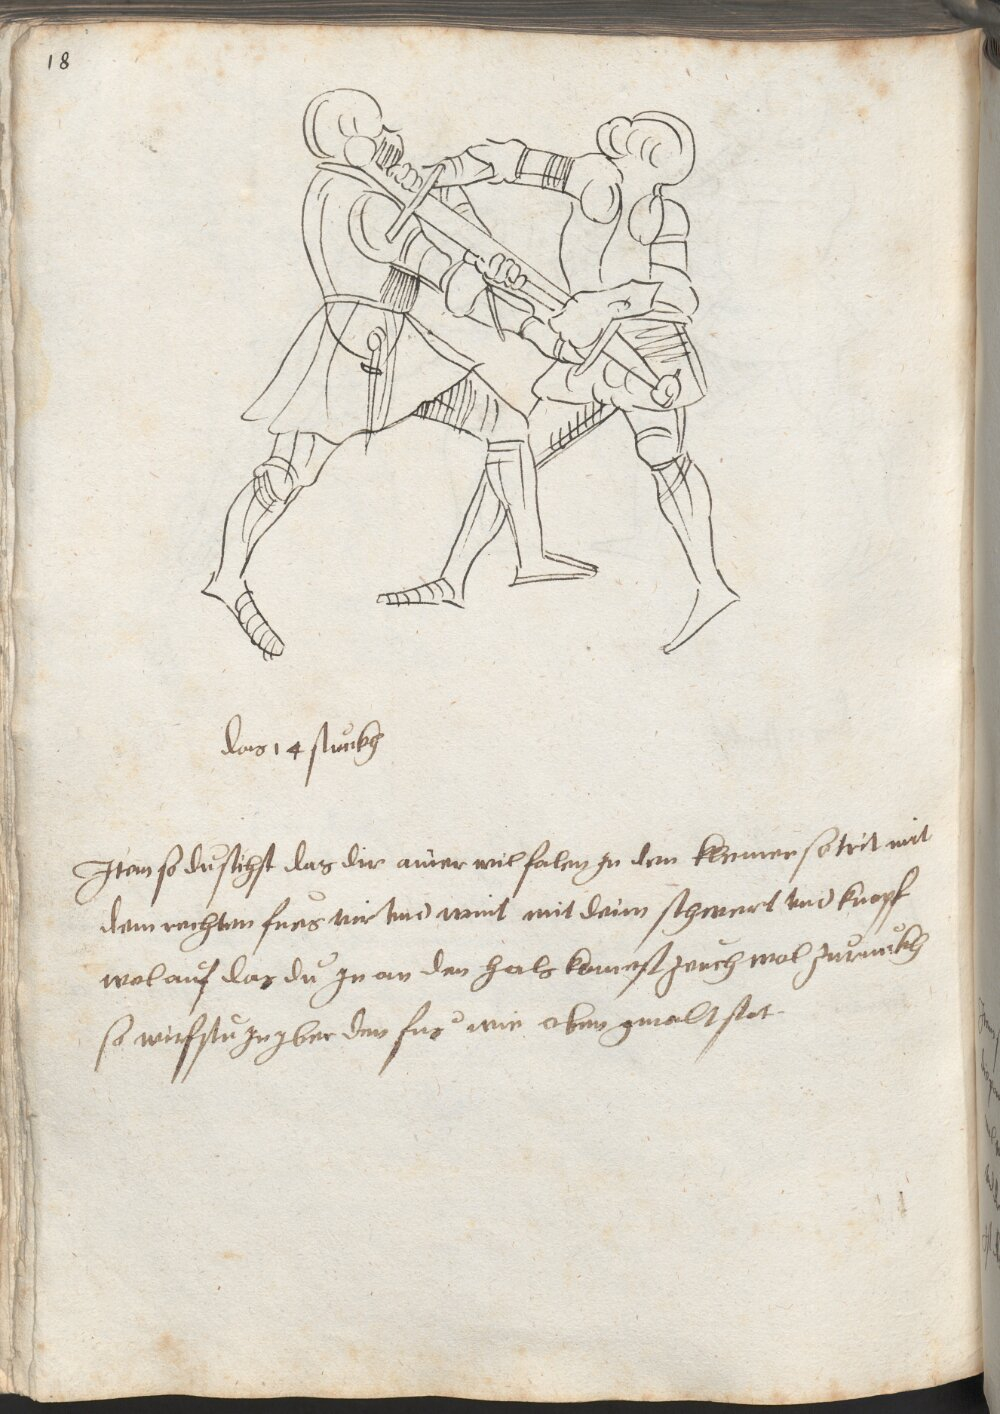 18
das 14 stuckh
Item so du sichst das dir ainer wil falen Jn den so trit mit
dem rechten fues vir vnd wint mit deim schwert vnd knopf
wol auf das du Jn an den hals komest zeuch wol zuruckh
so wirfstu Jn yber den fus wie oben gmalt stet